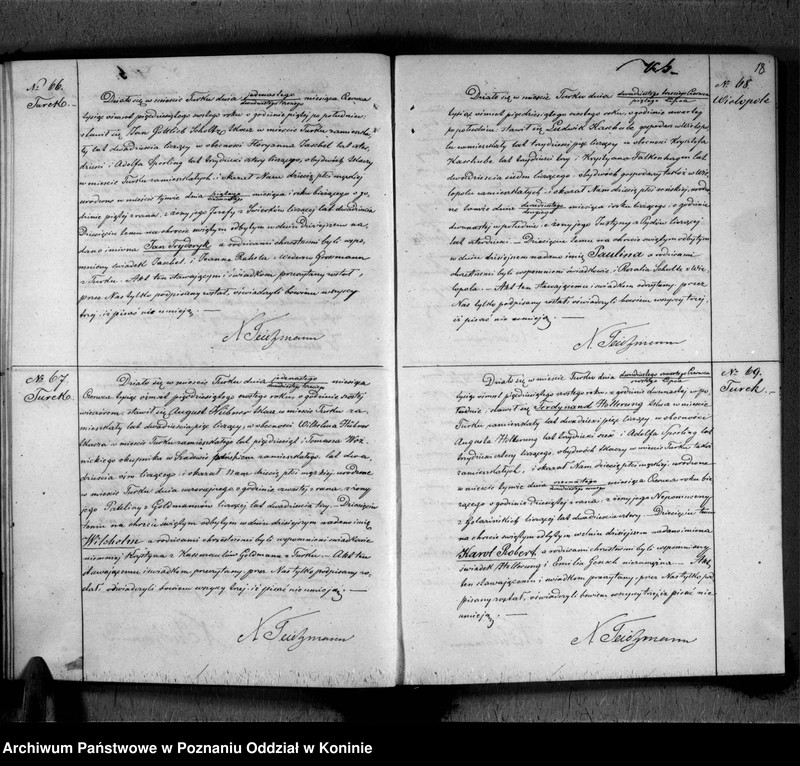 No 66.
Turek.
Działo się w mieście Turku dnia jedenastego miesiąca Czerwca
tysiąc ośmset pięćdziesiątego ósmego roku o godzinie piątej po południu
stawił się Jan Gottlieb Schultz, tkacz w mieście Turku zamieszkały
lat dwadzieścia liczący w obecności
i Adolfa Sperling lat trzydzieści cztery liczącego, obydwóch tkaczy
w mieście Turku zamieszkałych i okazał Nam dziecię płci męskiej
urodzone w mieście tutejszym dnia miesiąca i roku bieżącego o go-
dzinie piątej z rana, z żony jego Józefy z liczącej lat dwadzieścia
Dziecięciu temu na chrzcie świętym odbytym w dniu dzisiejszym na-
dano imiona Jan Frydryk, a rodzicami chrzestnymi byli wspo-
mniony świadek Jaschel i Joanna
z Turku. – Akt ten stawającemu i świadkom przeczytany został,
przez Nas tylko podpisany został, oświadczyli bowiem wszyscy
trzej, iż pisać nie umieją. —
N. Teichmann
No 67.
Turek.
Działo się w mieście Turku dnia jedenastego miesiąca
Czerwca tysiąc ośmset pięćdziesiątego ósmego roku o godzinie szóstej
wieczorem stawił się August tkacz w mieście Turku za-
mieszkały lat liczący, w obecności Wilhelma Hübner
tkacza w mieście Turku zamieszkałego lat pięćdziesiąt i Tomasza Woź-
nickiego okupnika w zamieszkałego lat dwa-
dzieścia liczącego i okazał Nam dziecię płci męskiej urodzone
w mieście Turku dnia wczorajszego o godzinie czwartej z rana z żony
jego Pauliny z Goldmannów liczącej lat dwadzieścia trzy. — Dziecięciu
temu na chrzcie świętym odbytym w dniu dzisiejszym nadano imię
Wilhelm, a rodzicami chrzestnymi byli wspomnieni świadkowie
niemniej Krystyna z Goldmann z Turku. – Akt ten
stawającemu i świadkom przeczytany, przez Nas tylko podpisany zo-
stał, oświadczyli bowiem wszyscy trzej, iż pisać nie umieją. —
N. Teichmann
18
No 68.
Wielopole
Działo się w mieście Turku dnia dwudziestego trzeciego Czerwca
piątego Lipca
tysiąc ośmset pięćdziesiątego ósmego roku, o godzinie czwartej
po południu stawił się Ludwik gospodarz w Wielopo-
lu zamieszkały lat trzydzieści pięć liczący w obecności Krysztofa
lat trzydzieści trzy i Krystyana Falkenhagen lat
dwadzieścia siedm liczącego, obydwóch gospodarzy także w Wie-
lopolu zamieszkałych – i okazał Nam dziecię płci żeńskiej, urodzo-
ne tamże dnia miesiąca i roku bieżącego o godzinie
dwunastej w południe z żony jego Justyny z liczącej
lat — Dziecięciu temu na chrzcie świętym odbytym
w dniu dzisiejszym nadano imię Paulina a rodzicami
chrzestnymi byli wspomnieni świadkowie i Rozalia Schultz z Wie-
lopola. – Akt ten stawającemu i świadkom odczytany przez
Nas tylko podpisany został oświadczyli bowiem wszyscy trzej,
iż pisać nie umieją. —
N. Teichmann
No 69.
Turek.
Działo się w mieście Turku dnia dwudziestego czwartego Czerwca
szóstego Lipca
tysiąc ośmset pięćdziesiątego ósmego roku, o godzinie dwunastej w po-
łudnie, stawił się Ferdynand Hellerung tkacz w mieście
Turku zamieszkały lat dwadzieścia pięć liczący w obecności
Augusta Hellerung lat trzydzieści ośm i Adolfa Sperling lat
trzydzieści cztery liczącego, obydwóch tkaczy w mieście Turku także
zamieszkałych, i okazał Nam dziecię płci męskiej, urodzone
w mieście tymże dnia osmnastego miesiąca Czerwca roku bie-
żącego o godzinie dziesiątej z rana, z żony jego Nepomuceny
z liczącej lat dwadzieścia cztery. – Dziecięciu temu
na chrzcie świętym odbytym w dniu dzisiejszym nadano imiona
Karol Robert, a rodzicami chrzestnymi byli wspomniany
świadek Hellerung i Emilia niezamężna. – Akt
ten stawającemu i świadkom przeczytany, przez Nas tylko pod-
pisany został, oświadczyli bowiem wszyscy trzej iż pisać nie
umieją. —
N. Teichmann
Archiwum Państwowe w Poznaniu Oddział w Koninie